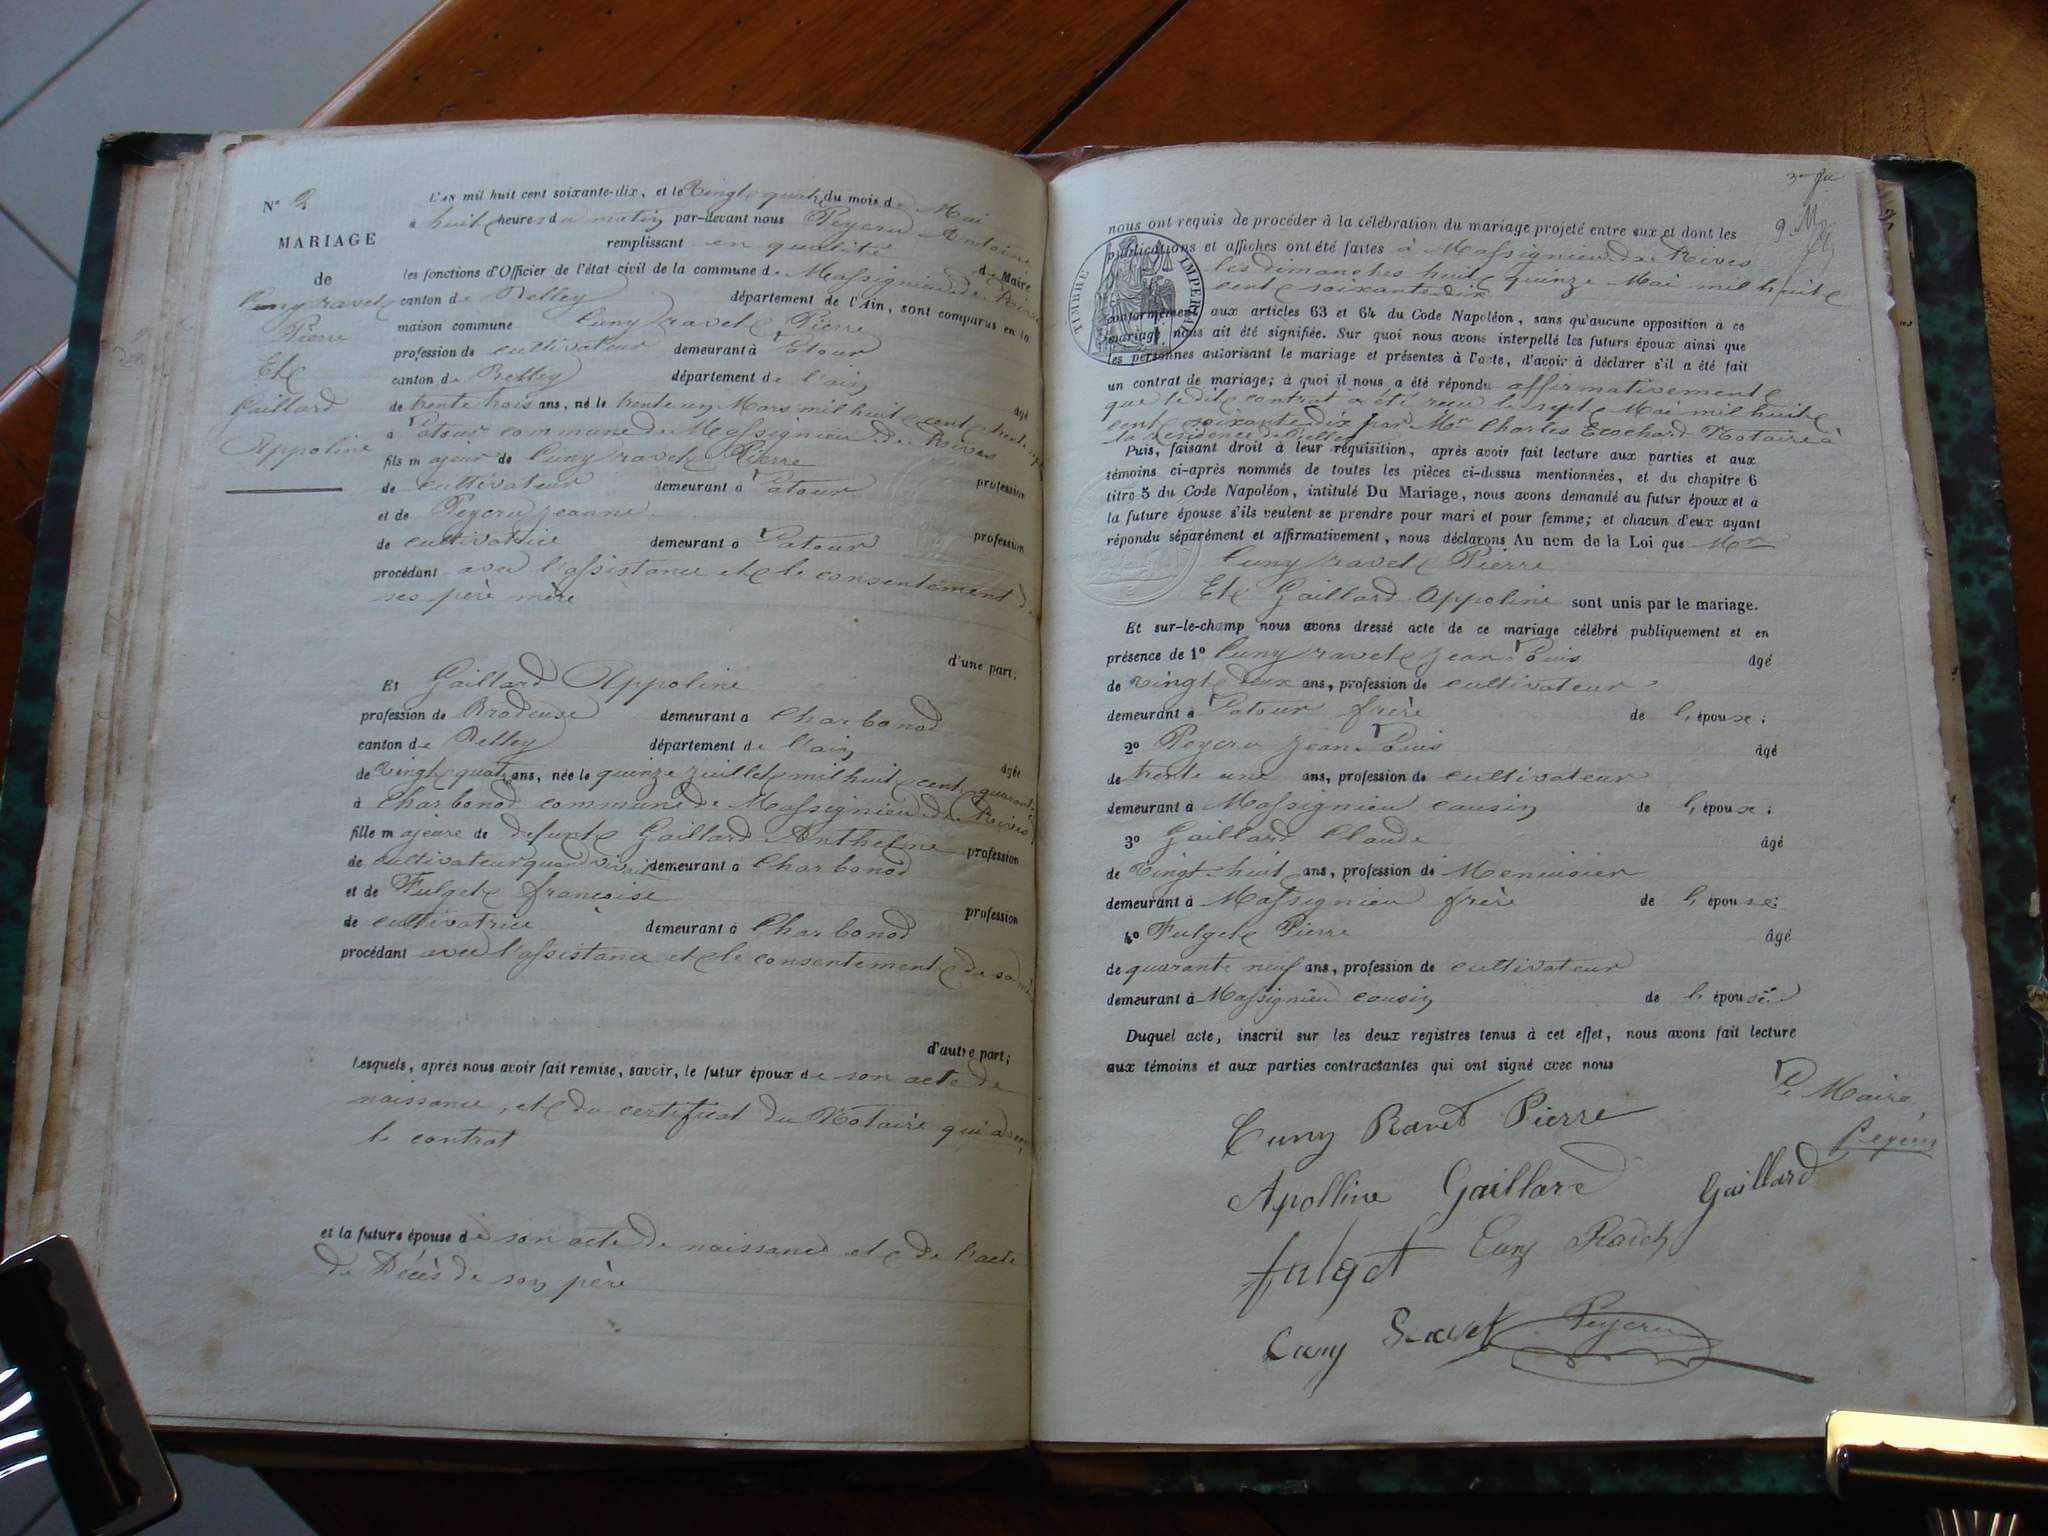 N° 2
MARIAGE
de
Cuny ravet
Pierre
Et
Gaillard
Appoline
L'an mil huit cent soixante-dix, et le Vingt quatre du mois de Mai
à huit heures du matin par-devant nous Peycru Antoine
remplissant en qualité de Maire
les fonctions d'Officier de l'état civil de la commune de Massignieu de Rives
canton de Belley département de l'Ain, sont comparus en la
maison commune Cuny ravet Pierre
profession de cultivateur demeurant à Latour
canton de Belley département de l'ain âgé
de trente trois ans, né le trente un Mars mil huit cent trente sept
à Latour commune de Massignieu de Rives
fils majeur de Cuny ravet Pierre profession
de cultivateur demeurant à Latour
et de Peycru jeanne profession
de cultivatrice demeurant à Latour
procédant avec l'assistance et le consentement de
ses père mère
d'une part;
Et Gaillard Appoline
profession de Brodeuse demeurant à Charbonod
canton de Belley département de l'ain âgée
de vingt quatre ans, née le quinze juillet mil huit cent quarante
à Charbonod commune de Massignieu de Rives
fille majeure de defunt Gaillard Anthelme profession
de cultivateur quand vivait demeurant à Charbonod
et de Fulget françoise profession
de cultivatrice demeurant à Charbonod
procédant avec l'assistance et le consentement de sa mère
d'autre part;
Lesquels, après nous avoir fait remise, savoir, le futur époux de son acte de
naissance, et du certificat du Notaire qui a reçu
le contrat
et la future épouse de son acte de naissance et de l'acte
de Décès de son père
nous ont requis de procéder à la célébration du mariage projeté entre eux et dont les
publications et affiches ont été faites à Massignieu de Rives
les dimanches huit quinze Mai mil huit
cent soixante dix
TIMBRE IMPERIAL
conformément aux articles 63 et 64 du Code Napoléon, sans qu'aucune opposition à ce
mariage nous ait été signifiée. Sur quoi nous avons interpellé les futurs époux ainsi que
les personnes autorisant le mariage et présentes à l'acte, d'avoir à déclarer s'il a été fait
un contrat de mariage; à quoi il nous a été répondu affirmativement
que le dit contrat a été reçu le sept Mai mil huit
cent soixante dix par Mtr Charles Ecochard Notaire à
la residence de Belley
Puis, faisant droit à leur réquisition, après avoir fait lecture aux parties et aux
témoins ci-après nommés de toutes les pièces ci-dessus mentionnées, et du chapitre 6
titre 5 du Code Napoléon, intitulé Du Mariage, nous avons demandé au futur époux et à
la future épouse s'ils veulent se prendre pour mari et pour femme; et chacun d'eux ayant
répondu séparément et affirmativement, nous déclarons Au nom de la Loi que Mr
Cuny ravet Pierre
Et Gaillard Appoline sont unis par le mariage.
Et sur-le-champ nous avons dressé acte de ce mariage célébré publiquement et en
présence de 1° Cuny ravet jean Louis âgé
de vingt deux ans, profession de cultivateur
demeurant à Latour frère de l'époux;
2° Peycru jean Louis âgé
de trente une ans, profession de cultivateur
demeurant à Massignieu cousin de l'époux;
3° Gaillard Claude âgé
de Vingt-huit ans, profession de Menuisier
demeurant à Massignieu frère de l'épouse;
4° Fulget Pierre âgé
de quarante neuf ans, profession de cultivateur
demeurant à Massignieu cousin de l'épouse
Duquel acte, inscrit sur les deux registres tenus à cet effet, nous avons fait lecture
aux témoins et aux parties contractantes qui ont signé avec nous
Le Maire,
Cuny Ravet Pierre
Apolline Gaillard Gaillard
fulget Cuny
Cuny Ravet Peycru